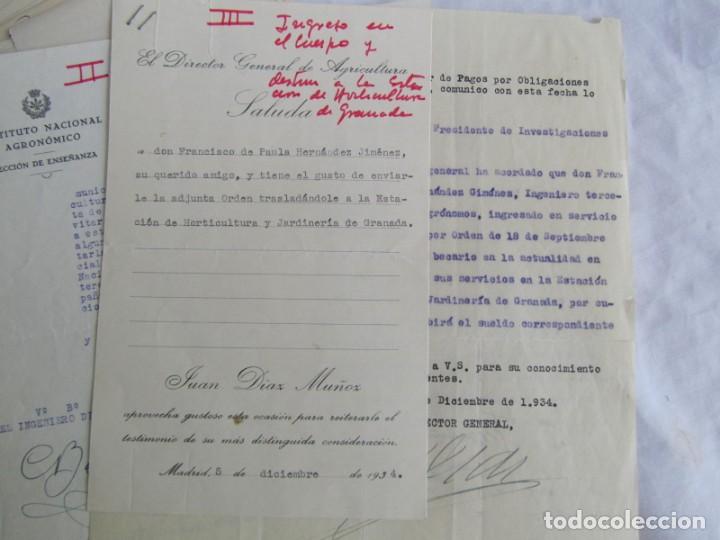 11
III
Ingreso en
el Cuerpo y
destino a la Esta
ción de Horticultura
de Granada
El Director General de Agricultura
Saluda
a don Francisco de Paula Hernández Jiménez,
su querido amigo, y tiene el gusto de enviar-
le la adjunta Orden trasladándole a la Esta-
ción de Horticultura y Jardinería de Granada.
Juan Díaz Muñoz
aprovecha gustoso esta ocasión para reiterarle el
testimonio de su más distinguida consideración.
Madrid, 5 de diciembre de 1934.
II
TITUTO NACIONAL
AGRONÓMICO
ECCIÓN DE ENSEÑANZA
munic
cultur
ta de
vitar
a est
algun
tarl
cial
Nac
terc
pañ
y
Vº Bº
EL INGENIERO DI
r de Pagos por Obligaciones
, comunico con esta fecha lo
Presidente de Investigaciones
general ha acordado que don Fran
nández Giménez, Ingeniero terce-
grónomos, ingresado en servicio
por Orden de 18 de Septiembre
becario en la actualidad en
sus servicios en la Estación
Jardinería de Granada, por cu-
birá el sueldo correspondiente
a V.S. para su conocimiento
entes.
e Diciembre de 1.934.
ECTOR GENERAL,
todocoleccion.net